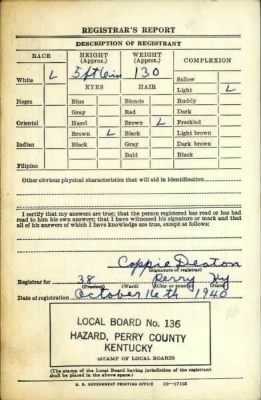 REGISTRAR'S REPORT
DESCRIPTION OF REGISTRANT
RACE HEIGHT (Approx.) WEIGHT (Approx.) COMPLEXION
White L 5 ft 6 in 130 Sallow
EYES HAIR Light L
Negro Blue Blonde Ruddy
Gray Red Dark
Oriental Hazel Brown L Freckled
Brown L Black Light brown
Indian Black Gray Dark brown
Bald Black
Filipino
Other obvious physical characteristics that will aid in identification
I certify that my answers are true; that the person registered has read or has had
read to him his own answers; that I have witnessed his signature or mark and that
all of his answers of which I have knowledge are true, except as follows:
Coppie Deaton
(Signature of registrar)
Registrar for 38 Perry Ky
(Precinct) (Ward) (City or county) (State)
Date of registration October 16th 1940
LOCAL BOARD No. 136
HAZARD, PERRY COUNTY
KENTUCKY
(STAMP OF LOCAL BOARD)
(The stamp of the Local Board having jurisdiction of the registrant
shall be placed in the above space.)
U. S. GOVERNMENT PRINTING OFFICE 16—17105